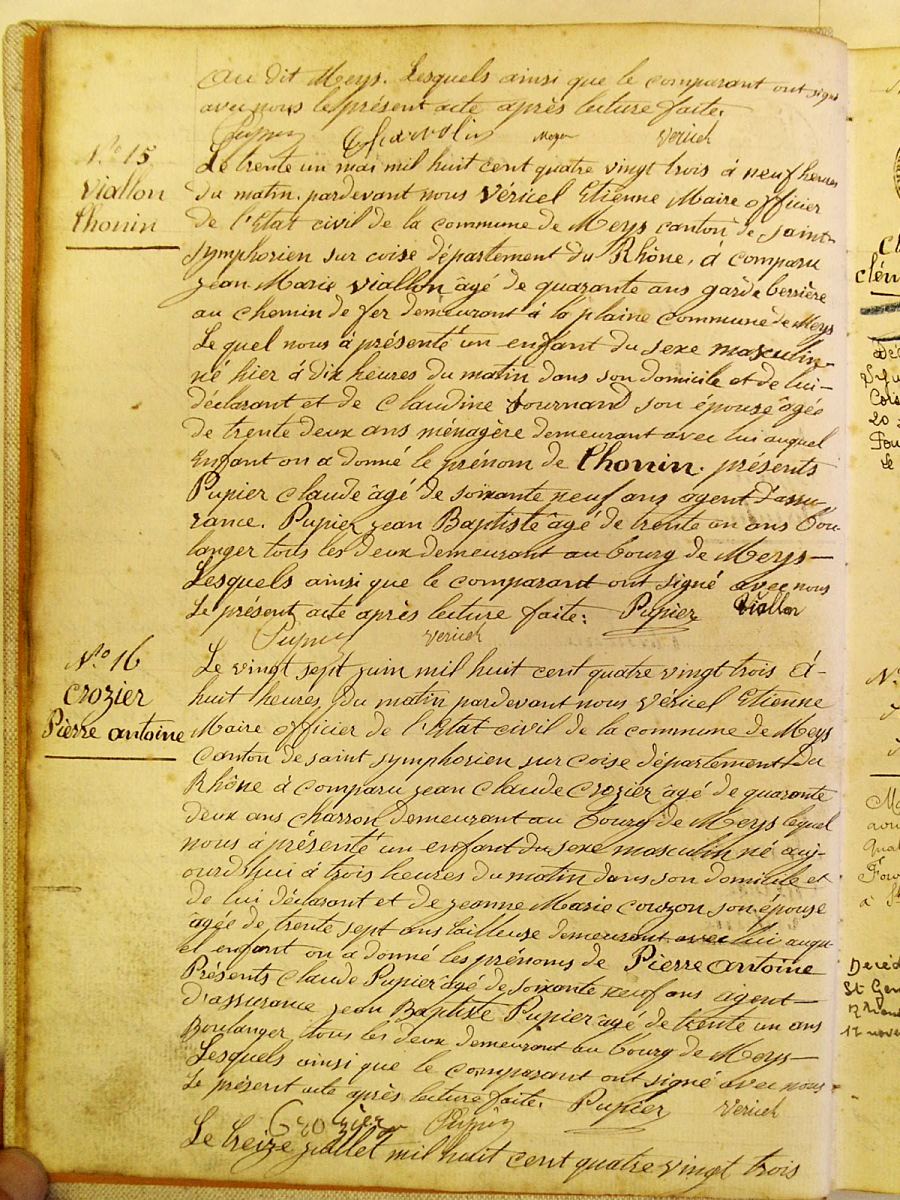 au dit Meys. Lesquels ainsi que le comparant ont signé
avec nous le présent acte après lecture faite.
Pupier Vericel
N.° 15
Viallon
Thonin
Le trente un mai mil huit cent quatre vingt trois à neuf heures
du matin. pardevant nous Véricel Etienne Maire officier
de l'Etat civil de la commune de Meys canton de saint-
symphorien sur coise département du Rhône, à comparu
jean Marie Viallon âgé de quarante ans garde berrière
au chemin de fer demeurant à la plaine commune de Meys
Le quel nous à présenté un enfant du sexe masculin-
né hier à dix heures du matin dans son domicile et de lui-
déclarant et de Claudine son épouse âgée
de trente deux ans ménagère demeurant avec lui auquel
enfant on a donné le prénom de Thonin. présents
Pupier claude âgé de soixante neuf ans agent d'assu-
rance. Pupier jean Baptiste âgé de trente un ans bou-
langer tous les deux demeurant au bourg de Meys—
Lesquels ainsi que le comparant ont signé avec nous
Le présent acte après lecture faite. Pupier Viallon
Pupier Vericel
N.° 16
Crozier
Pierre antoine
Le vingt sept juin mil huit cent quatre vingt trois à-
huit heures du matin pardevant nous Véricel Etienne
Maire officier de l'Etat civil de la commune de Meys
canton de saint symphorien sur coise département du
Rhône à comparu jean claude Crozier âgé de quarante
deux ans charron demeurant au bourg de Meys lequel
nous à présenté un enfant du sexe masculin né auj-
ourd'hui à trois heures du matin dans son domicile et
de lui déclarant et de jeanne Marie couzon son épouse
âgée de trente sept ans tailleuse demeurant avec lui auqu-
el enfant on a donné les prénoms de Pierre antoine
Présents claude Pupier âgé de soixante neuf ans agent—
d'assurance jean Baptiste Pupier âgé de trente un ans
Boulanger tous les deux demeurant au bourg de Meys—
Lesquels ainsi que le comparant ont signé avec nous
Le présent acte après lecture faite. Pupier Vericel
Crozier Pupier
Le treize juillet mil huit cent quatre vingt trois